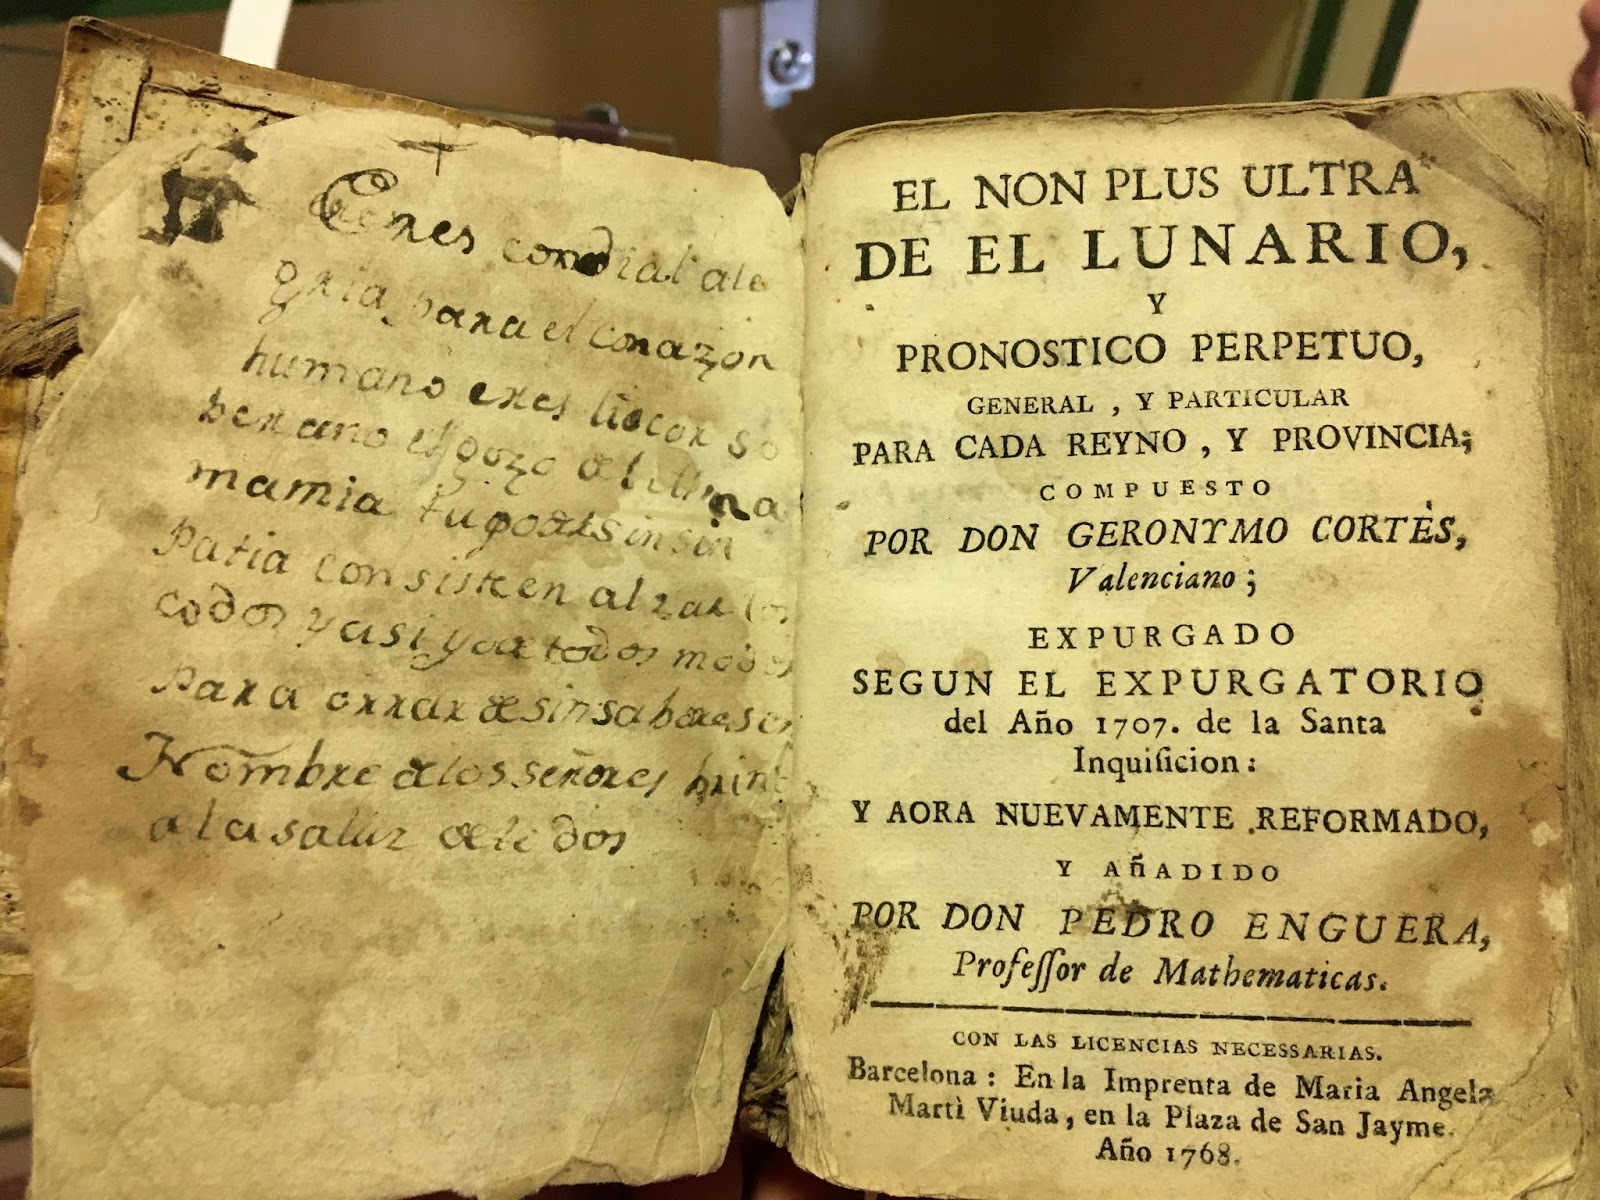 Eres cordial ale
gria para el corazon
humano eres licor so
berano el gozo del alma
mamia tu podersinsin
patia consiste en alzar los
codos y asi yo de todos modos
para orrar desinsabores en
Nombre de los señores brin
a la salluz de todos
EL NON PLUS ULTRA
DE EL LUNARIO,
Y
PRONOSTICO PERPETUO,
GENERAL, Y PARTICULAR
PARA CADA REYNO, Y PROVINCIA;
COMPUESTO
POR DON GERONYMO CORTÈS,
Valenciano;
EXPURGADO
SEGUN EL EXPURGATORIO
del Año 1707. de la Santa
Inquiſicion:
Y AORA NUEVAMENTE REFORMADO,
Y AñADIDO
POR DON PEDRO ENGUERA,
Profeſſor de Mathematicas.
CON LAS LICENCIAS NECESSARIAS.
Barcelona: En la Imprenta de Maria Angela
Martì Viuda, en la Plaza de San Jayme.
Año 1768.